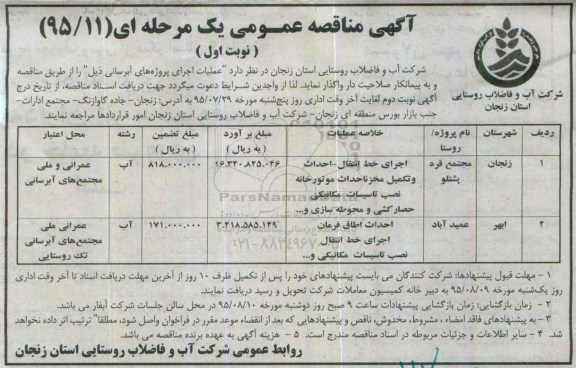 آگهی مناقصه عمـــومی یک مرحله ای(۹۵/۱۱)
( نوبت اول )
شرکت آب و فاضلاب روستایی
استان زنجان
شرکت آب و فاضلاب روستایی استان زنجان در نظر دارد "عملیات اجرای پروژه‌های آبرسانی ذیل" را از طریق مناقصه
و به پیمانکار صلاحیت دار واگذار نماید. لذا از واجدین شرایط دعوت میگردد جهت دریافت اسناد مناقصه، از تاریخ درج
آگهی نوبت دوم لغایت آخر وقت اداری روز پنج‌شنبه مورخه ۹۵/۰۷/۲۹ به آدرس: زنجان- جاده گاوازنگ- مجتمع ادارات-
جنب بازار بورس منطقه ای زنجان- شرکت آب و فاضلاب روستایی استان زنجان امور قراردادها مراجعه نمایند.
ردیف شهرستان نام پروژه/ روستا خلاصه عملیات مبلغ بر آورد (به ریال) مبلغ تضمین (به ریال) رشته محل اعتبار
۱ زنجان مجتمع قره پشتلو اجرای خط انتقال -احداث ۱۶.۳۴۰.۸۲۵.۰۴۶ ۸۱۸.۰۰۰.۰۰۰ آب عمرانی و ملی
وتکمیل مخزن‌احداث موتورخانه مجتمع‌های آبرسانی
نصب تاسیسات مکانیکی
حصارکشی و محوطه سازی و...
۲ ابهر عمید آباد احداث اطاق فرمان ۳.۴۱۸.۵۸۵.۱۴۹ ۱۷۱.۰۰۰.۰۰۰ آب عمرانی ملی
اجرای خط انتقال مجتمع‌های آبرسانی
نصب تاسیسات مکانیکی و... تک روستایی
ParsNamadData
۰۲۱-۸۸۳۴۹۶۷۰
۱ - مهلت قبول پیشنهادها: شرکت کنندگان می بایست پیشنهادهای خود را پس از تکمیل ظرف ۱۰ روز از آخرین مهلت دریافت اسناد تا آخر وقت اداری
روز یک‌شنبه مورخه ۹۵/۰۸/۰۹ به دبیر خانه کمیسیون معاملات شرکت تحویل و رسید دریافت نمایند.
۲ - زمان بازگشایی: زمان بازگشایی پیشنهادات ساعت ۹ صبح روز دوشنبه مورخه ۹۵/۰۸/۱۰ در محل سالن جلسات شرکت آبفار می باشد.
۳ - به پیشنهادهای فاقد امضاء ، مشروط، مخدوش، ناقص و پیشنهادهایی که بعد از انقضاء موعد مقرر در فراخوان واصل شود، مطلقا" ترتیب اثر داده نخواهد
شد. ۴ - سایر اطلاعات و جزئیات مربوطه در اسناد مناقصه مندرج است. ۵ - هزینه آگهی به عهده برنده مناقصه می باشد.
روابط عمومی شرکت آب و فاضلاب روستایی استان زنجان